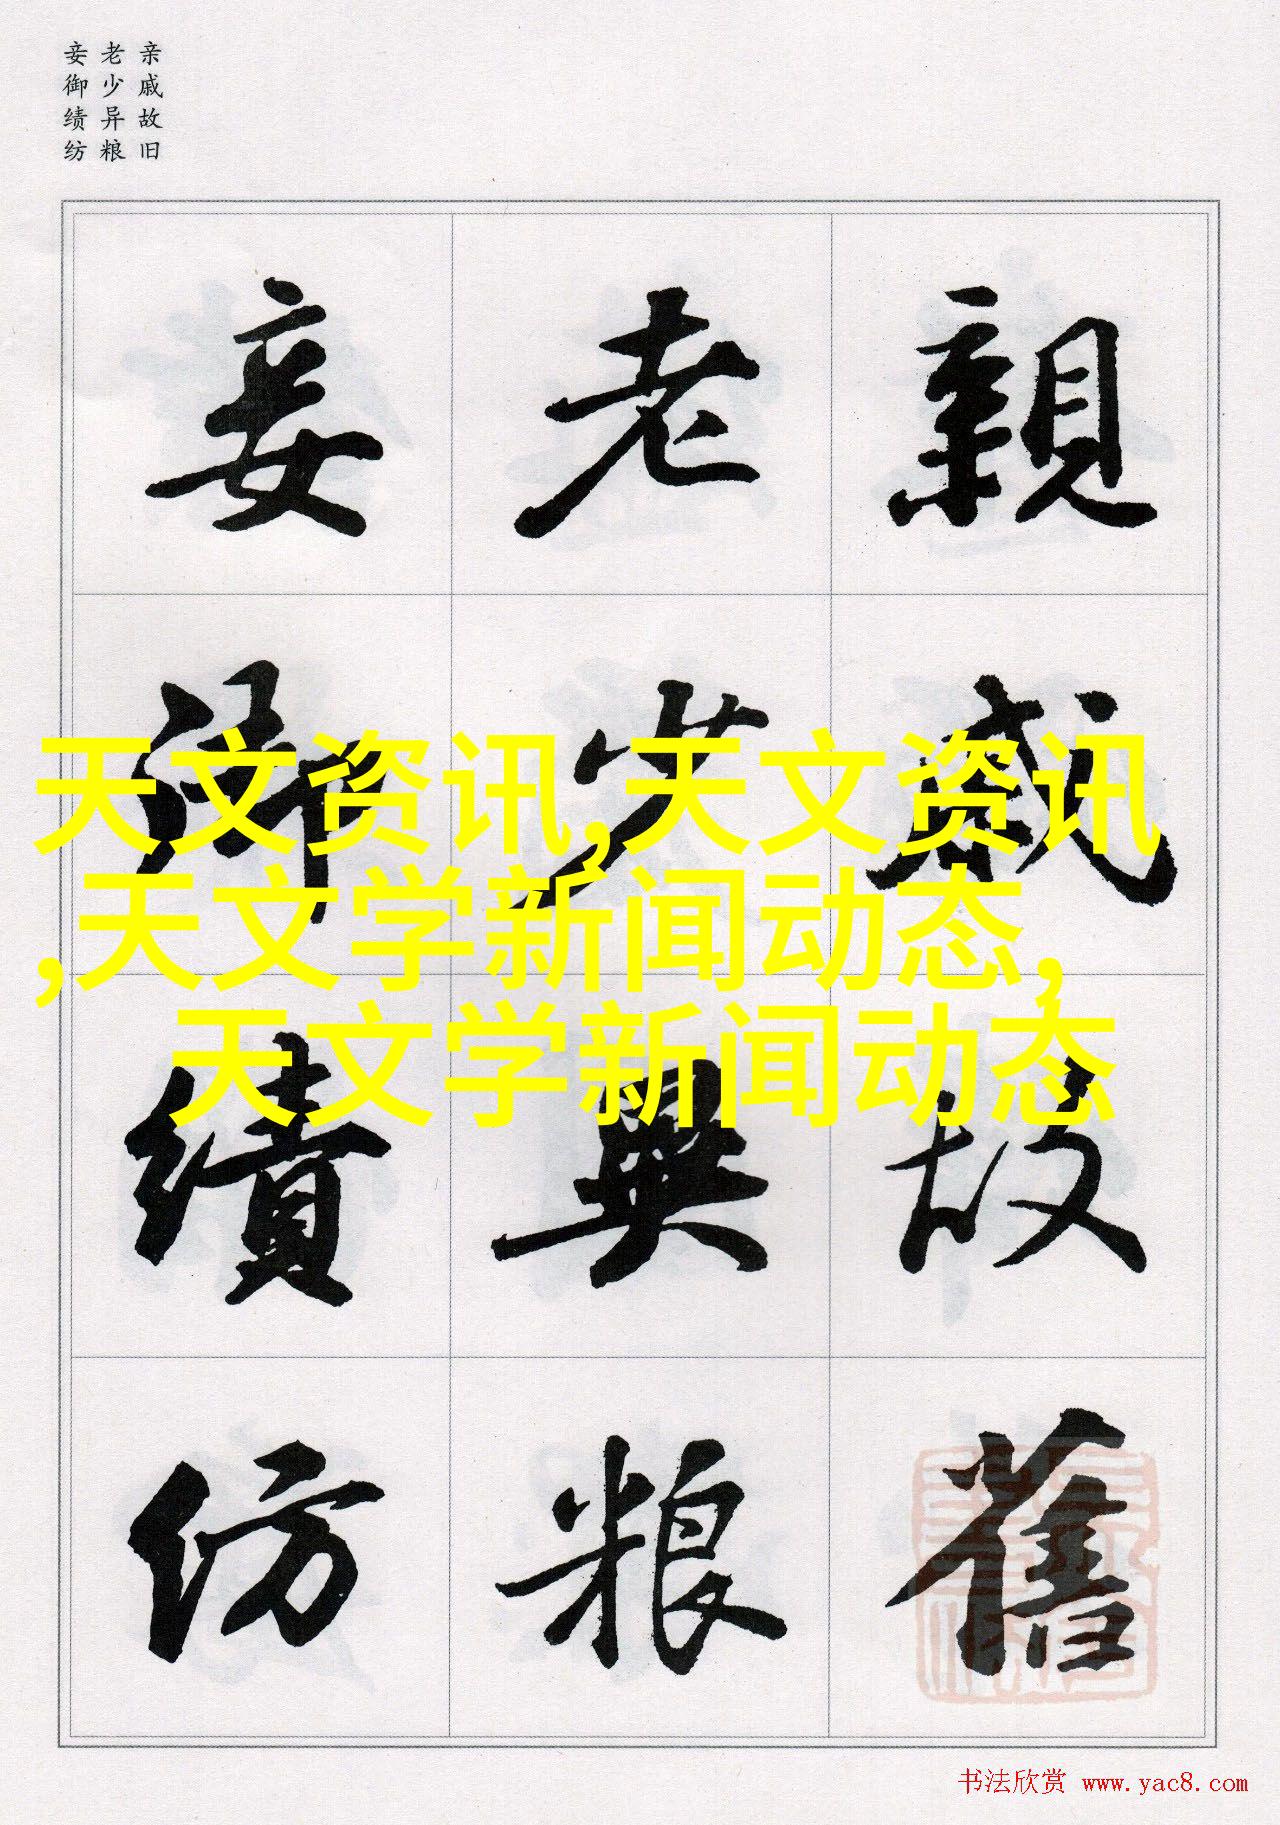 亲戚故旧
老少异粮
妾御绩纺
親戚故舊
老少異粮
妾御績紡
天文资讯,天文资讯
,天文学新闻动态,
天文学新闻动态
书法欣赏 www.yac8.com